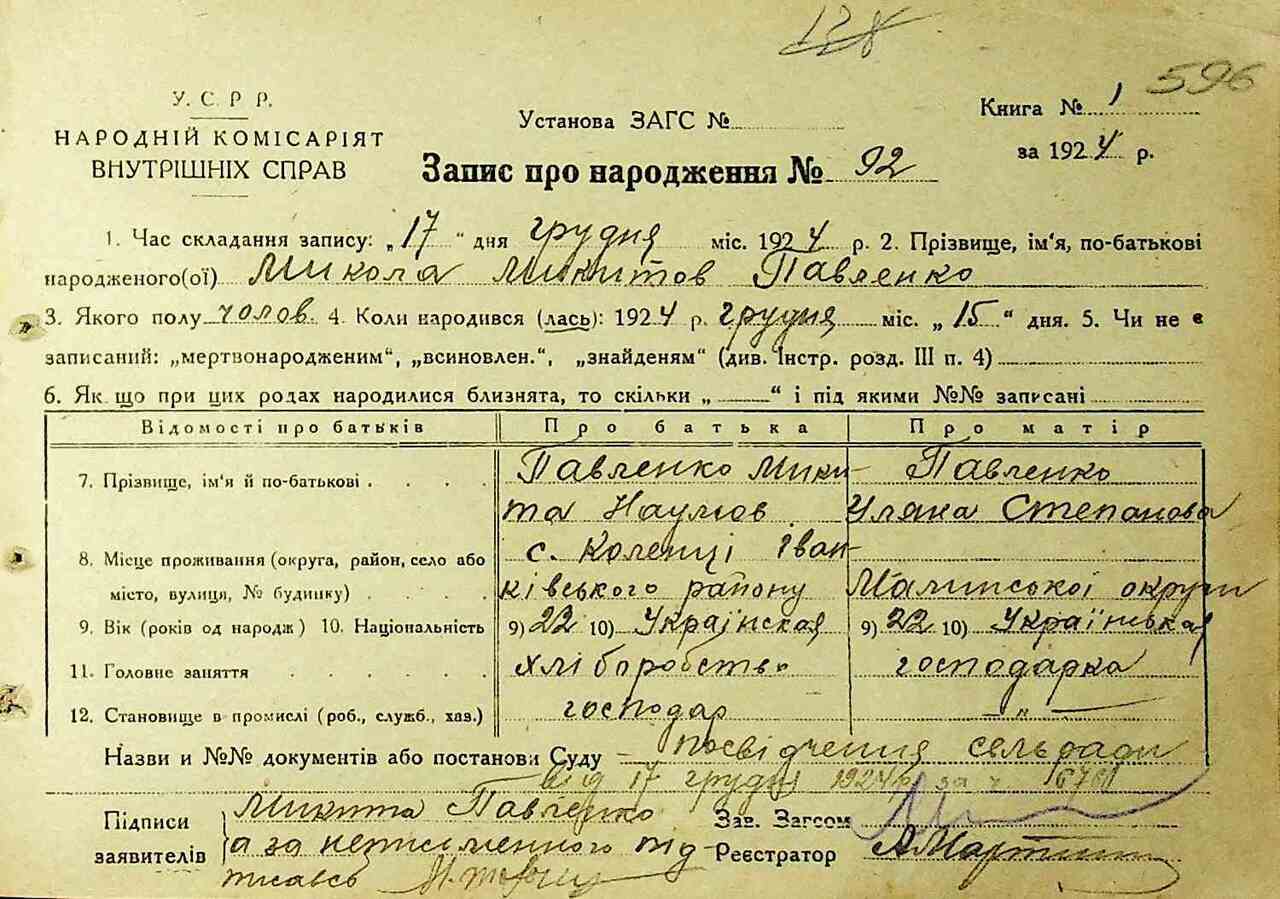 128
596
У. С. Р. Р.
НАРОДНІЙ КОМІСАРІЯТ
ВНУТРІШНІХ СПРАВ
Установа ЗАГС №
Книга № 1
за 1924 р.
Запис про народження № 92
1. Час складання запису: „17“ дня грудня міс. 1924 р. 2. Прізвище, ім'я, по-батькові
народженого(ої) Микола Микитов Павленко
3. Якого полу чолов. 4. Коли народився (лась): 1924 р. грудня міс. „15“ дня. 5. Чи не є
записаний: „мертвонародженим“, „всиновлен.“, „знайденям“ (див. Інстр. розд. III п. 4)
6. Як що при цих родах народилися близнята, то скільки „ “ і під якими №№ записані
Відомості про батьків Про батька Про матір
7. Прізвище, ім'я й по-батькові Павленко Мики- Павленко
та Наумов Уляна Степанова
8. Місце проживання (округа, район, село або с. Коленці Іван-
місто, вулиця, № будинку) ківського району Малинської округи
9. Вік (років од народж) 10. Національність 9) 22 10) Українская 9) 22 10) Українська
11. Головне заняття хліборобство господарка
12. Становище в промислі (роб., служб., хаз.) господар – „ –
Назви и №№ документів або постанови Суду – посвідчення сельради
від 17 грудня 1924 р за ч
Підписи Микита Павленко Зав. Загсом
заявителів а за неписменного під- Реєстратор А Мартин
писавсь